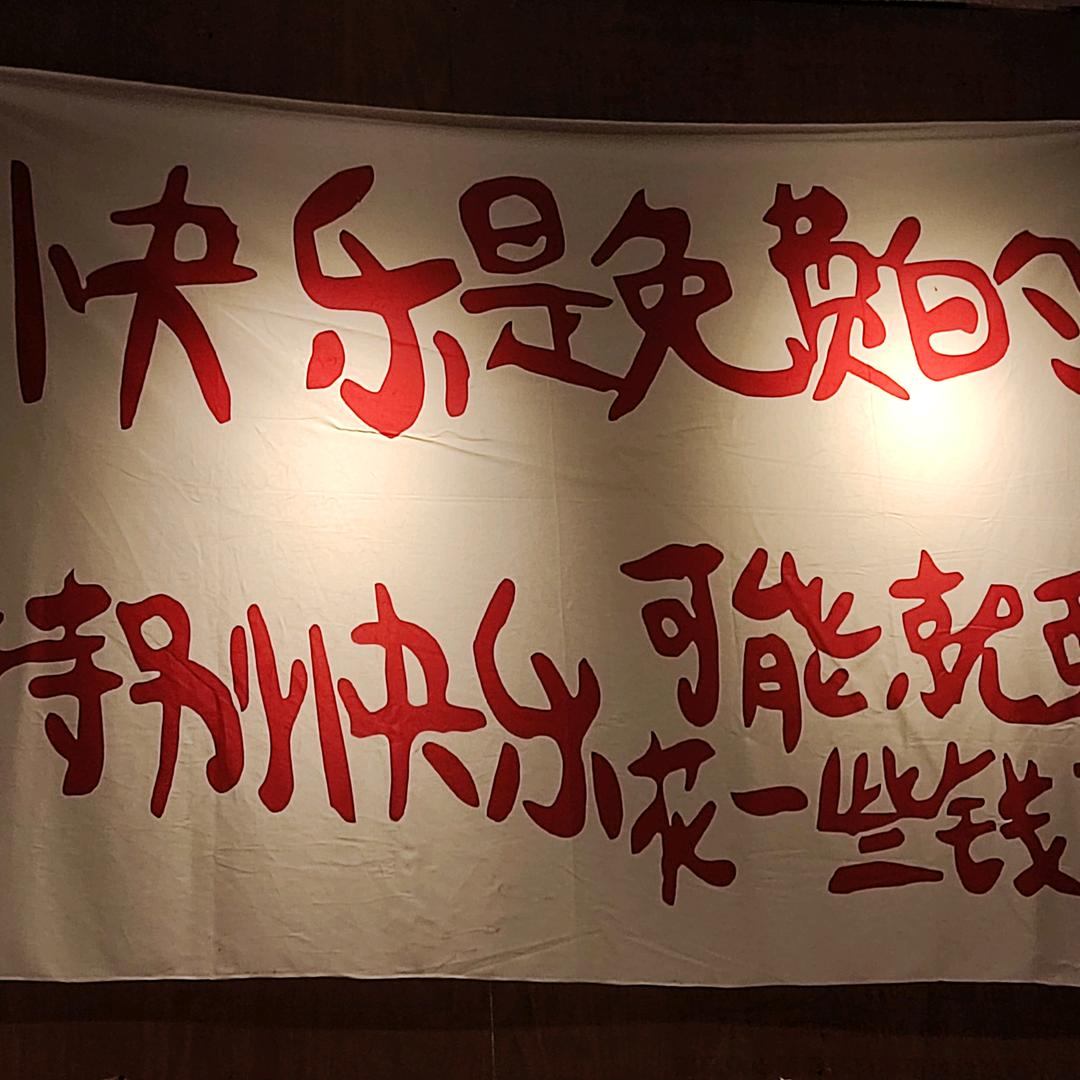 快乐是免费的
特别快乐可能就要
花一些钱